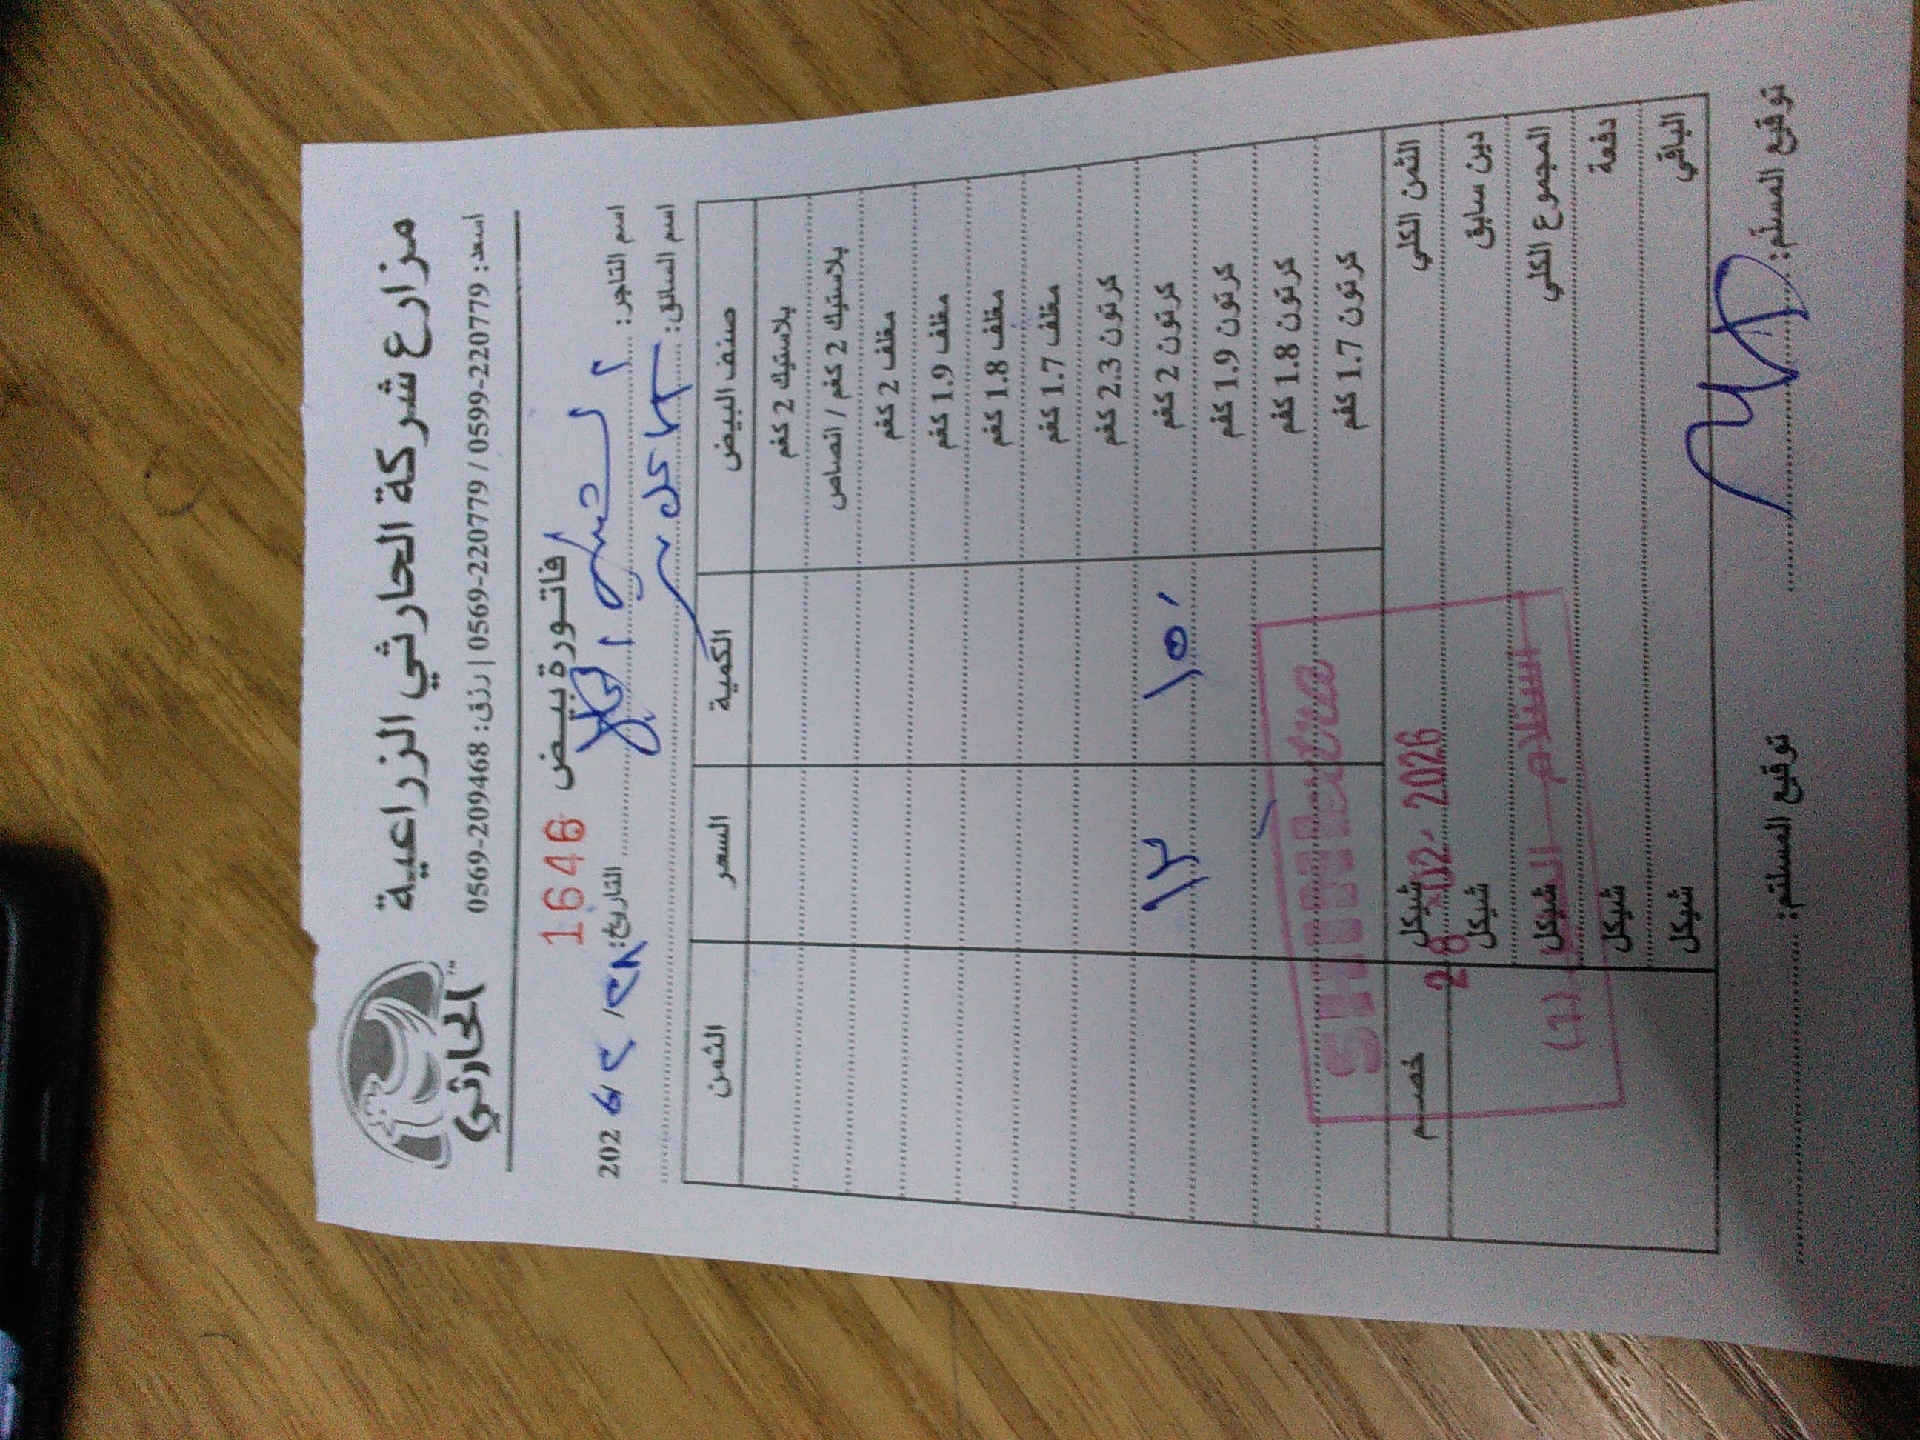 مزارع شركة الحارثي الزراعية
الحارثي
أسعد: 0599-220779 / 0569-220779 | رزق: 0569-209468
فاتورة بيض 1646
اسم التاجر: التاريخ: ٢٨ / ٢ / 2026
اسم السائق:
صنف البيض الكمية السعر الثمن
بلاستيك 2 كغم
بلاستيك 2 كغم / انصاص
مغلف 2 كغم
مغلف 1.9 كغم
مغلف 1.8 كغم
مغلف 1.7 كغم
كرتون 2.3 كغم
كرتون 2 كغم ١٥٠ ١٢
كرتون 1.9 كغم
كرتون 1.8 كغم
كرتون 1.7 كغم
الثمن الكلي شيكل خصم
دين سابق شيكل
المجموع الكلي شيكل
دفعة شيكل
الباقي شيكل
28 -02- 2026
استلام
(1)
توقيع المسلّم: توقيع المستلم: